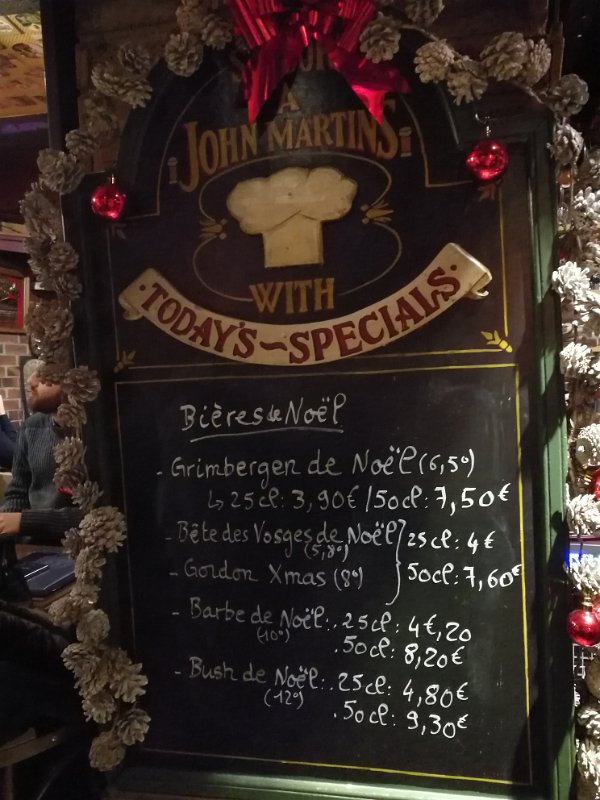 A
JOHN MARTIN'S
WITH
·TODAY'S~SPECIALS·
Bières de Noël
- Grimbergen de Noël (6,5°)
↳ 25cl: 3,90€ / 50cl: 7,50€
- Bête des Vosges de Noël } 25cl: 4€
(5,8°)
- Gordon Xmas (8°) 50cl: 7,60€
- Barbe de Noël: . 25cl: 4€,20
(10°) . 50cl: 8,20€
- Bush de Noël: . 25cl: 4,80€
(12°) . 50cl: 9,30€